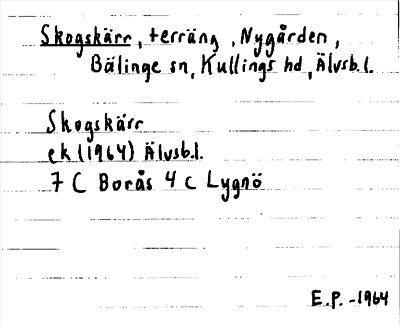 Skogskärr, terräng, Nygården,
Bälinge sn, Kullings hd, Älvsb.l.
Skogskärr
ek (1964) Älvsb.l.
7 C Borås 4 c Lygnö
E.P. -1964